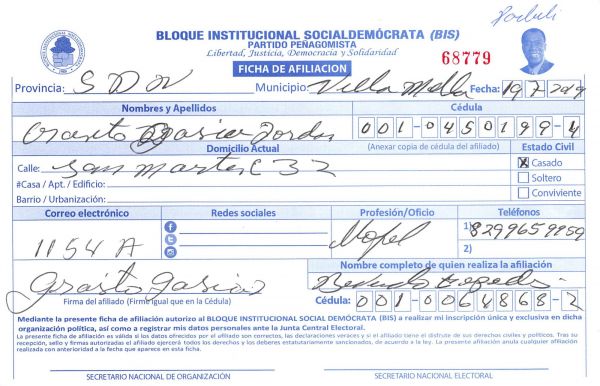 Porbeli
BLOQUE INSTITUCIONAL SOCIALDEMÓCRATA (BIS)
PARTIDO PEÑAGOMISTA
Libertad, Justicia, Democracia y Solidaridad
68779
FICHA DE AFILIACION
Provincia: S D N Municipio: Villa Mella Fecha: 19 7 2019
Nombres y Apellidos Cédula
001-0450199-4
Domicilio Actual (Anexar copia de cédula del afiliado) Estado Civil
Calle: San C 32 X Casado
#Casa / Apt. / Edificio: Soltero
Barrio / Urbanización: Conviviente
Correo electrónico Redes sociales Profesión/Oficio Teléfonos
1154 A 1) 8299659959
2)
Nombre completo de quien realiza la afiliación
Firma del afiliado (Firma igual que en la Cédula) Cédula: 001-0064868-2
Mediante la presente ficha de afiliación autorizo al BLOQUE INSTITUCIONAL SOCIAL DEMÓCRATA (BIS) a realizar mi inscripción única y exclusiva en dicha
organización política, así como a registrar mis datos personales ante la Junta Central Electoral.
La presente ficha de afiliación es válida si los datos ofrecidos por el afiliado son correctos, las declaraciones veraces y si el afiliado tiene el disfrute de sus derechos civiles y políticos. Tras su
recepción, sello y firmas autorizadas el afiliado ejercerá todos los derechos y los deberes estatutariamente sancionados, de acuerdo a la ley. La presente afiliación anula cualquier afiliación
realizada con anterioridad a la fecha que aparece en esta ficha.
SECRETARIO NACIONAL DE ORGANIZACIÓN SECRETARIO NACIONAL ELECTORAL